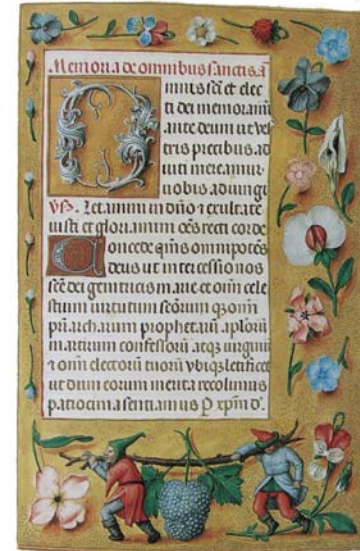 Memoria de omnibus sanctis. a
Omnis sc̄i et elec
ti dei memoramī
ante deum ut ves
tris precibus ad
iuti mereamur
uobis adiungi
vs̄. Letamini in dn̄o ⁊ exultate
iusti et gloriamini oēs recti corde
Concede qm̄s omnipotēs
deus ut intercessio nos
scē dei genitricis marie et oīm cele
stium uirtutum scōrum q̄ om̄
pr̄iarcharum prophetarū aplōrū
martirum confessorū atqꝫ urginū
⁊ om̄ electorū tuorū ubiqꝫ letificet
ut dum eorum merita recolimus
patrocinia sentiamus P xp̄m d'.